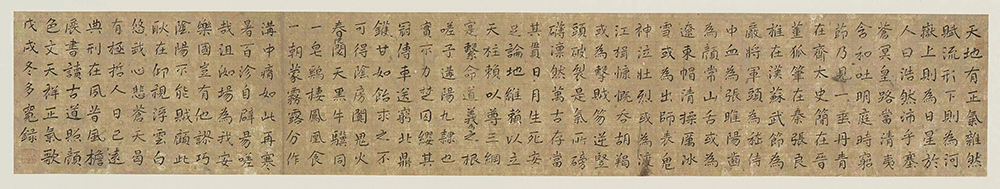 天地有正氣雜然
賦流形下則為河
嶽上則為日星於
人曰浩然沛乎塞
蒼冥皇路當清夷
含和吐明庭時窮
節乃見一一垂丹青
在齊太史簡在晉
董狐筆在秦張良
椎在漢蘇武節為
嚴將軍頭為嵇侍
中血為張睢陽齒
為顏常山舌或為
遼東帽清操厲冰
雪或為出師表鬼
神泣壯烈或為渡
江楫慷慨吞胡羯
或為擊賊笏逆豎
頭破裂是氣所磅
礴凜然萬古存當
其貫日月生死安
足論地維賴以立
天柱賴以尊三綱
寔繫命道義之根
嗟予遘陽九隸也
實不力楚囚纓其
冠傳車送窮北鼎
鑊甘如飴求之不
可得陰房闃鬼火
春閟天黑牛驥同
一皂鷄棲鳳凰食
一朝蒙霧露分作
溝中瘠如此再寒
暑百沴自辟易嗟
哉沮洳場為我安
樂國豈有他謬巧
陰陽不能賊顧此
耿在仰視浮雲白
悠悠我心悲蒼天曷
有極哲人日已遠
典刑在夙昔風檐
展書讀古道照顏
色文天祥正氣歌
戊戌冬多錄